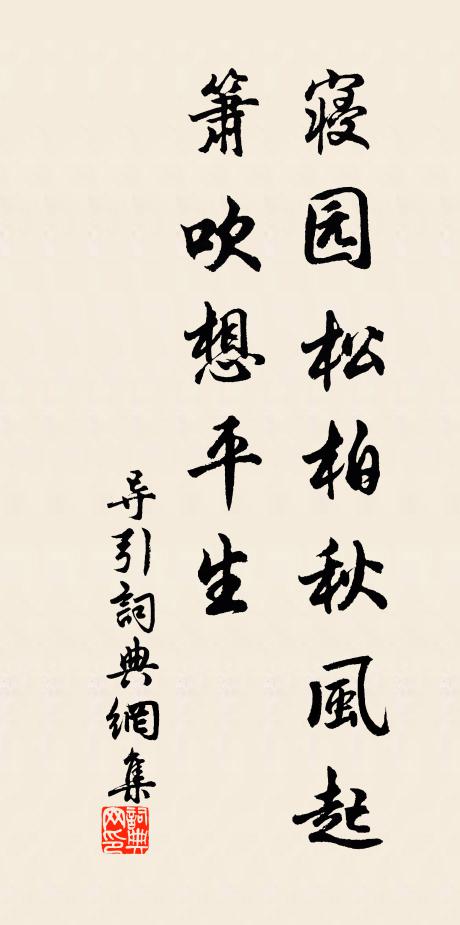 寝园松柏秋風起
簫吹想平生
导引詞典網集
詞典
网印